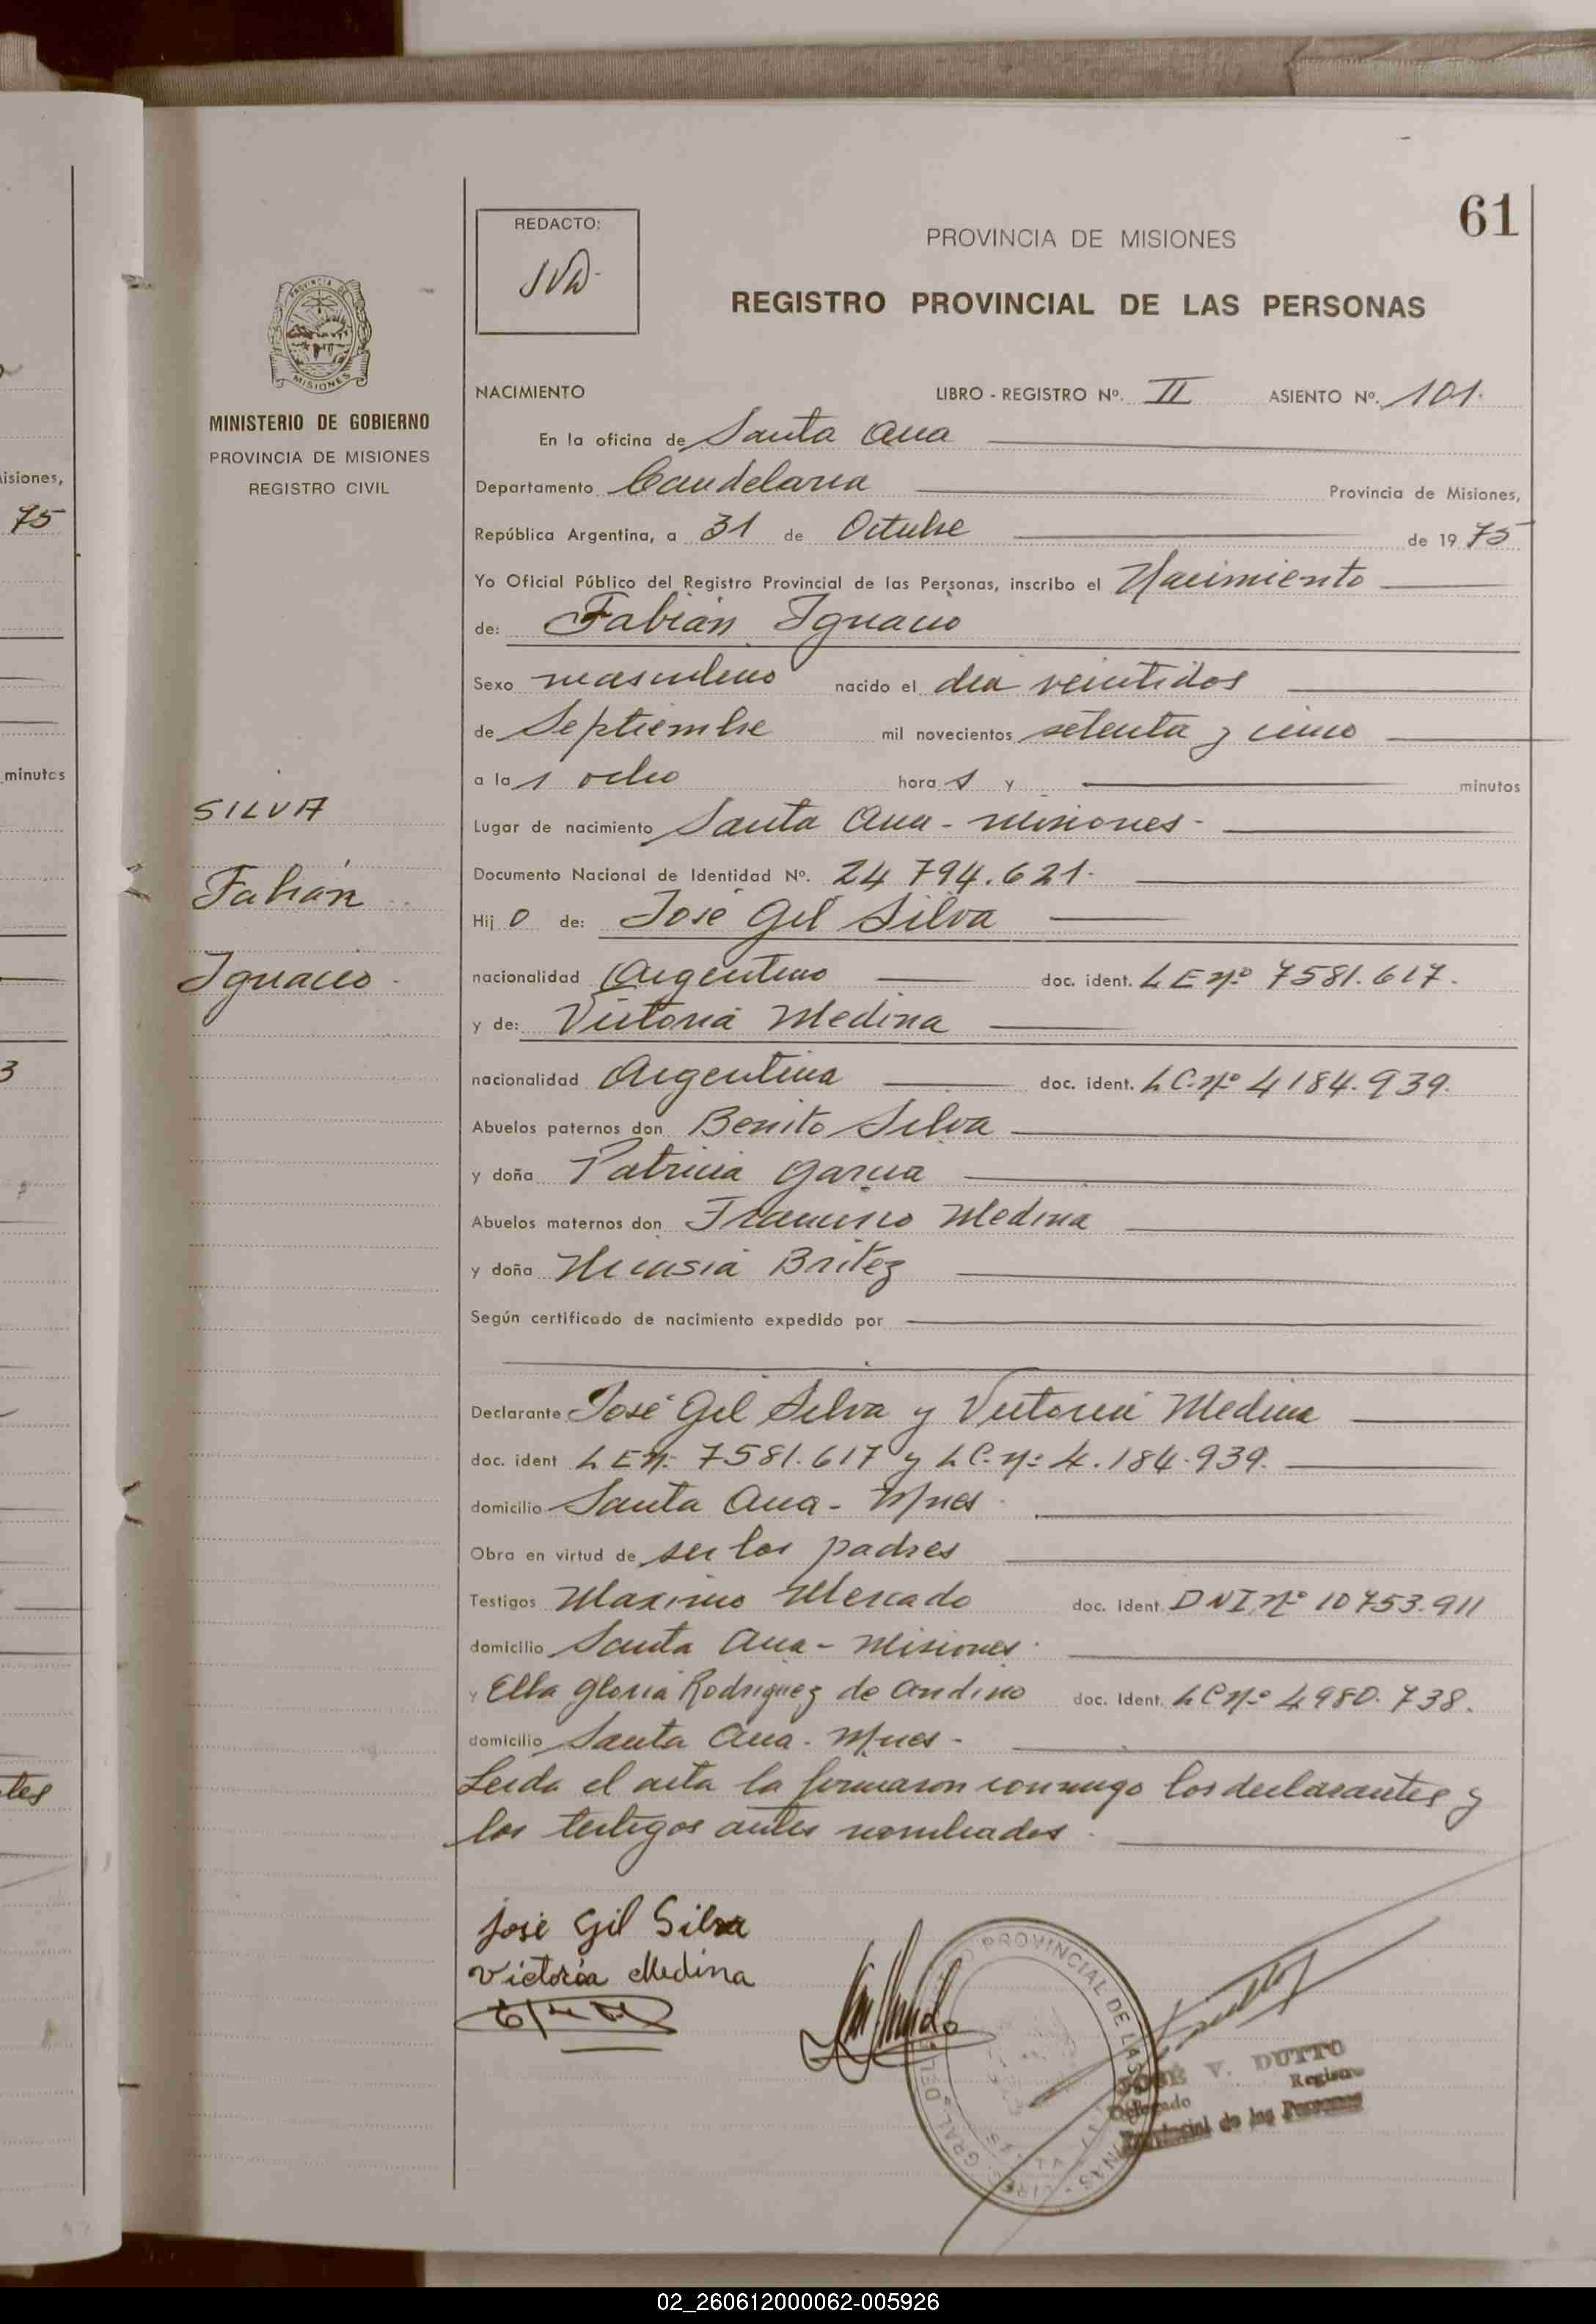 61
REDACTO:
PROVINCIA DE MISIONES
REGISTRO PROVINCIAL DE LAS PERSONAS
PROVINCIA DE
MISIONES
MINISTERIO DE GOBIERNO
PROVINCIA DE MISIONES
REGISTRO CIVIL
isiones,
75
minutos
3
tes
SILVA
Fabián
Ignacio
NACIMIENTO LIBRO - REGISTRO Nº. II ASIENTO Nº. 101.
En la oficina de Santa Ana
Departamento Candelaria Provincia de Misiones,
República Argentina, a 31 de Octubre de 1975
Yo Oficial Público del Registro Provincial de las Personas, inscribo el Nacimiento
de: Fabián Ignacio
Sexo masculino nacido el dia veintidos
de Septiembre mil novecientos setenta y cinco
a las ocho horas y minutos
Lugar de nacimiento Santa Ana - Misiones -
Documento Nacional de Identidad Nº. 24 794.621.
Hijo de: José Gil Silva
nacionalidad Argentino doc. ident. LE nº 7581.617.
y de: Victoria Medina
nacionalidad Argentina doc. ident. LC. nº 4184.939.
Abuelos paternos don Benito Silva
y doña Patricia Garcia
Abuelos maternos don Francisco Medina
y doña Nicasia Britez
Según certificado de nacimiento expedido por
Declarante José Gil Silva y Victoria Medina
doc. ident LE nº 7581.617 y LC. nº 4.184.939.
domicilio Santa Ana - Mnes
Obra en virtud de ser los padres
Testigos Maximo Mercado doc. Ident. DNI nº 10753.911
domicilio Santa Ana - Misiones
y Elba Gloria Rodriguez de Andino doc. Ident. LC nº 4980.738.
domicilio Santa Ana - Mnes -
Leida el acta la firmaron conmigo los declarantes y
los testigos antes nombrados
José Gil Silva
Victoria Medina
PROVINCIAL DE LAS
JOSÉ V. DUTTO
Delegado Registro
Provincial de las Personas
02_260612000062-005926